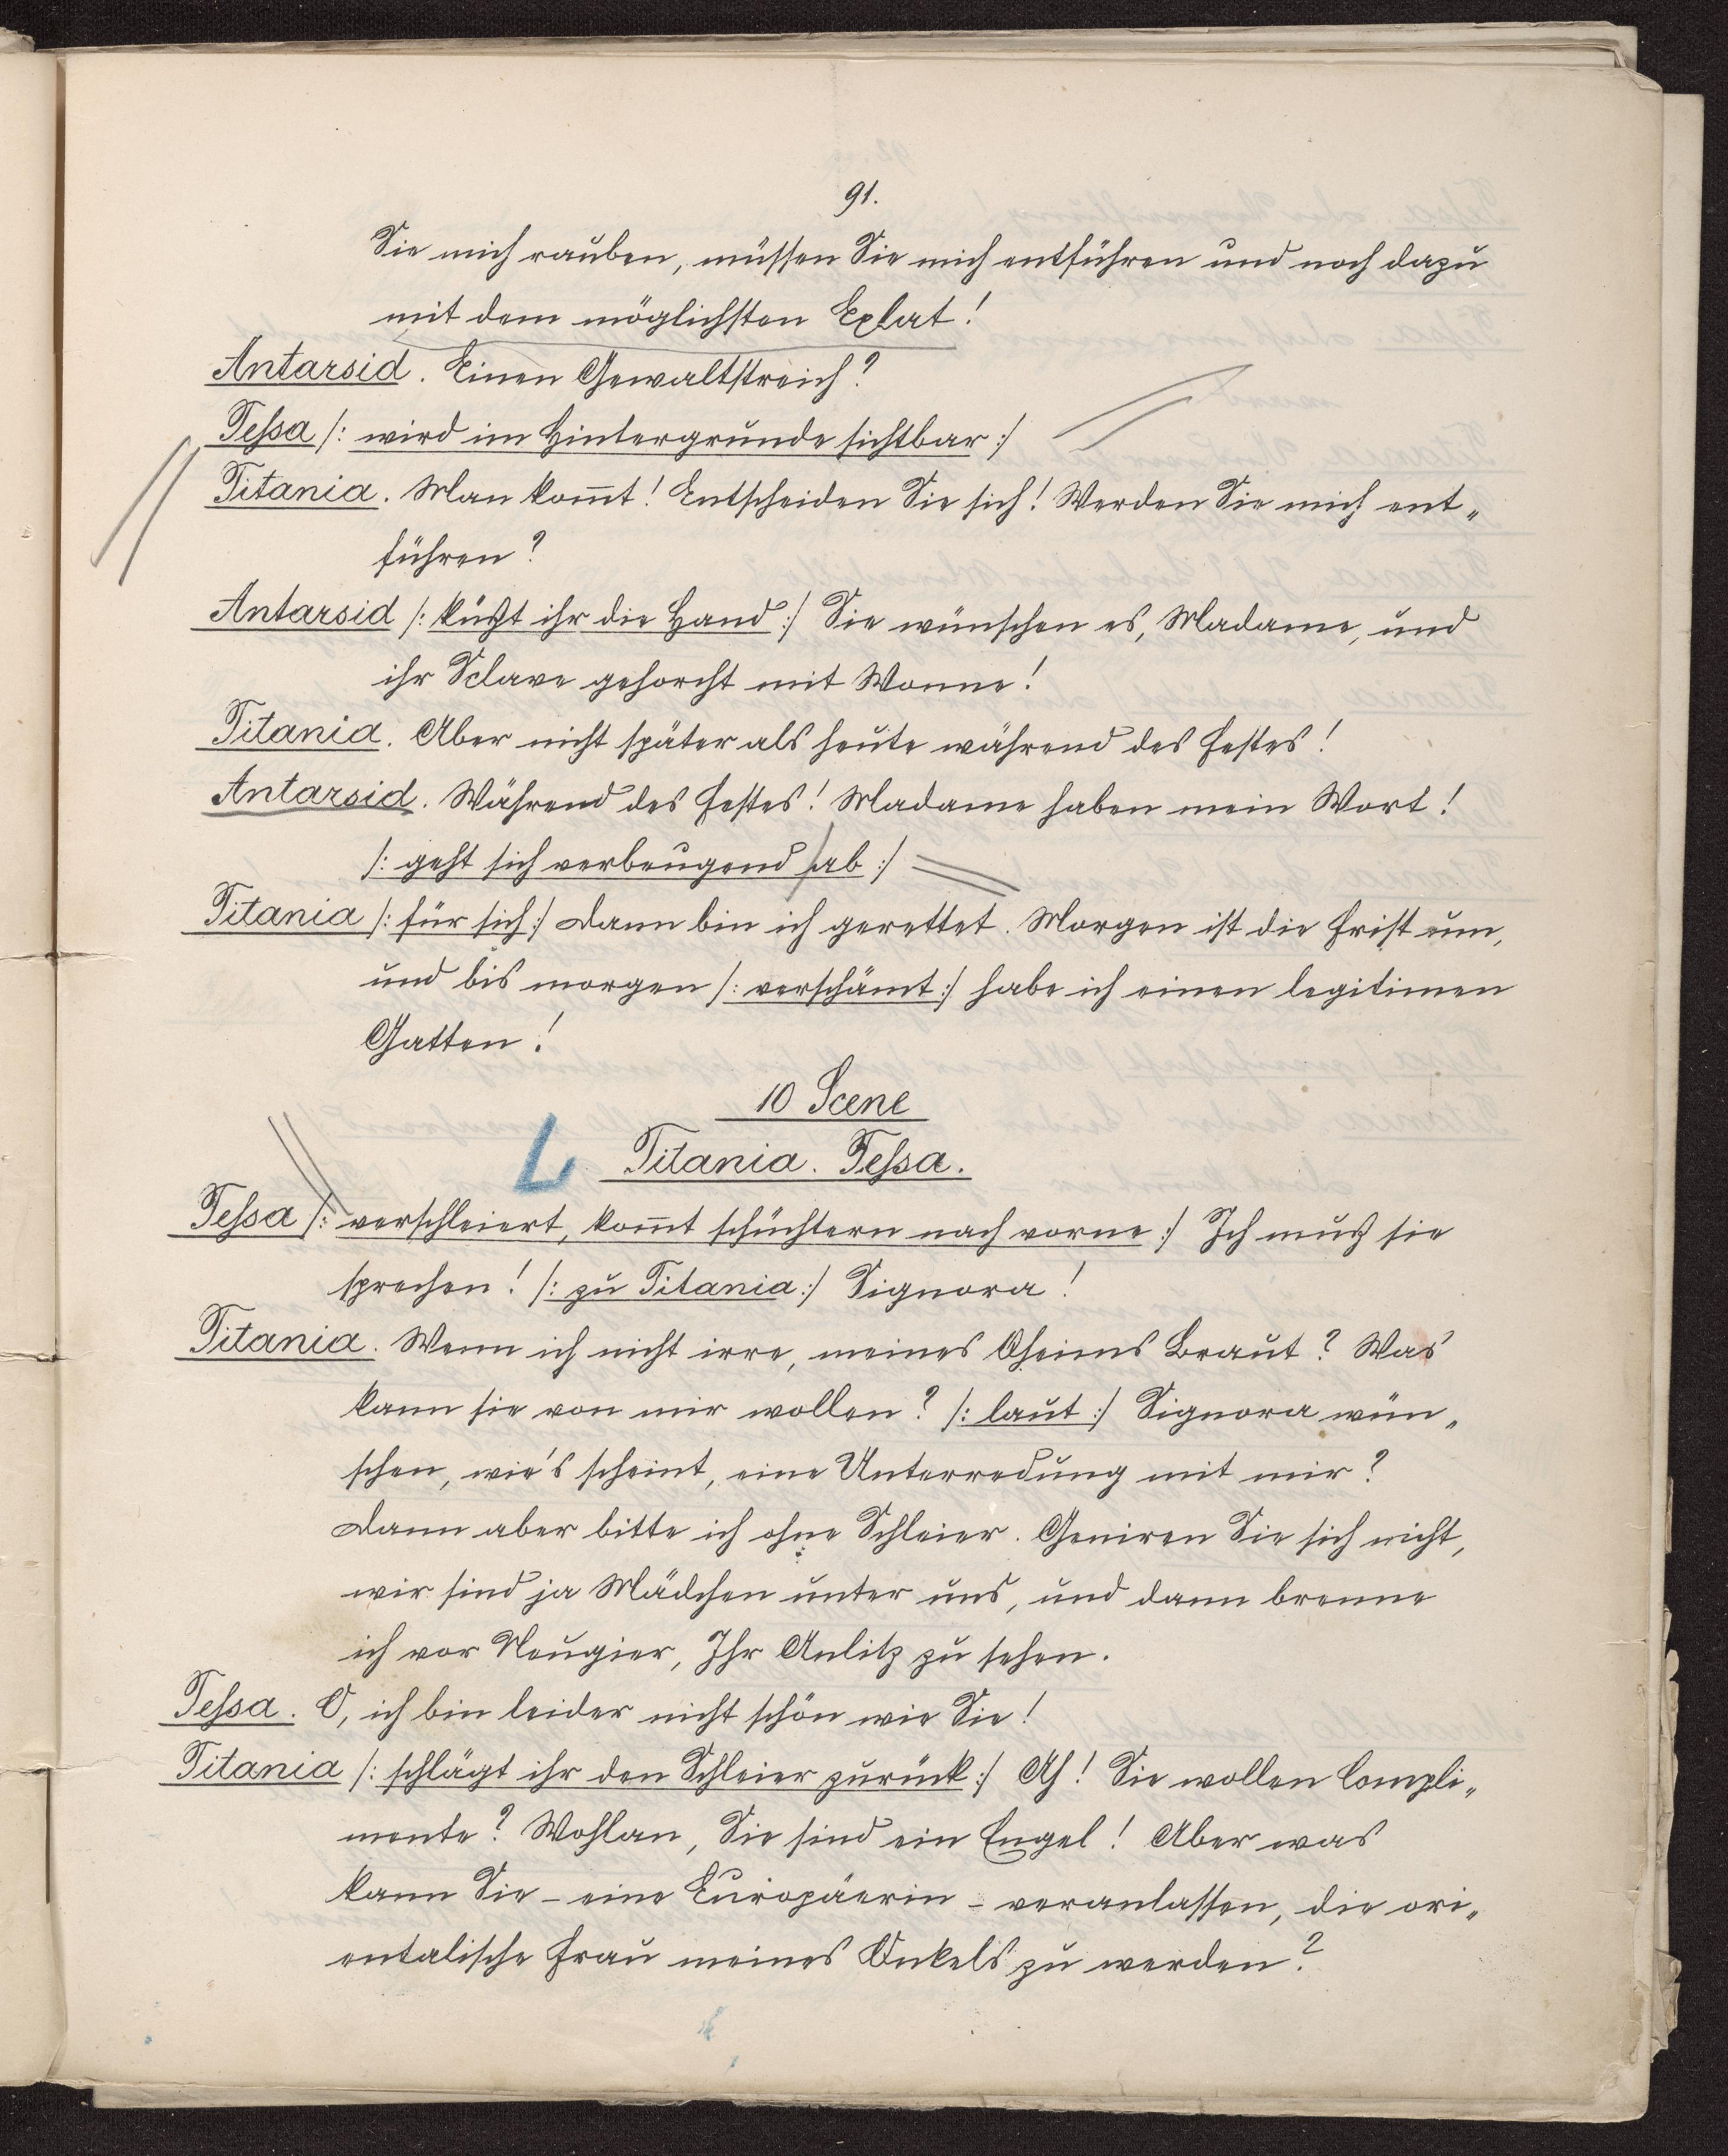 91.
Sie mich rauben, müssen Sie mich entführen und noch dazu
mit dem möglichsten Eklat!
Antarsid. Einen Gewaltstreich?
Tessa /: wird im Hintergrunde sichtbar :/
Titania. Man kom̅t! Entscheiden Sie sich! Werden Sie mich ent„
führen?
Antarsid /: küßt ihr die Hand :/ Sie wünschen es, Madame, und
ihr Sclave gehorcht mit Wonne!
Titania. Aber nicht später als heute während des Festes!
Antarsid. Während des Festes! Madame haben mein Wort!
/: geht sich verbeugend ab :/
Titania /: für sich :/ Dann bin ich gerettet. Morgen ist die Frist um,
und bis morgen /: verschämt :/ habe ich einen legitimen
Gatten!
10 Scene
L Titania. Tessa.
Tessa /: verschleiert, kom̅t schüchtern nach vorne :/ Ich muß sie
sprechen! /: zu Titania :/ Signora!
Titania. Wenn ich nicht irre, meines Oheims Braut? Was
kann sie von mir wollen? /: laut :/ Signora wün„
schen, wie's scheint, eine Unterredung mit mir?
Dann aber bitte ich ohne Schleier. Geniren Sie sich nicht,
wir sind ja Mädchen unter uns, und dann brenne
ich vor Neugier, Ihr Anlitz zu sehen.
Tessa. O, ich bin leider nicht schön wie Sie!
Titania /: schlägt ihr den Schleier zurück :/ Ah! Sie wollen Compli„
mente? Wohlan, Sie sind ein Engel! Aber was
kann Sie – eine Europäerin – veranlassen, die ori„
entalische Frau meines Onkels zu werden?